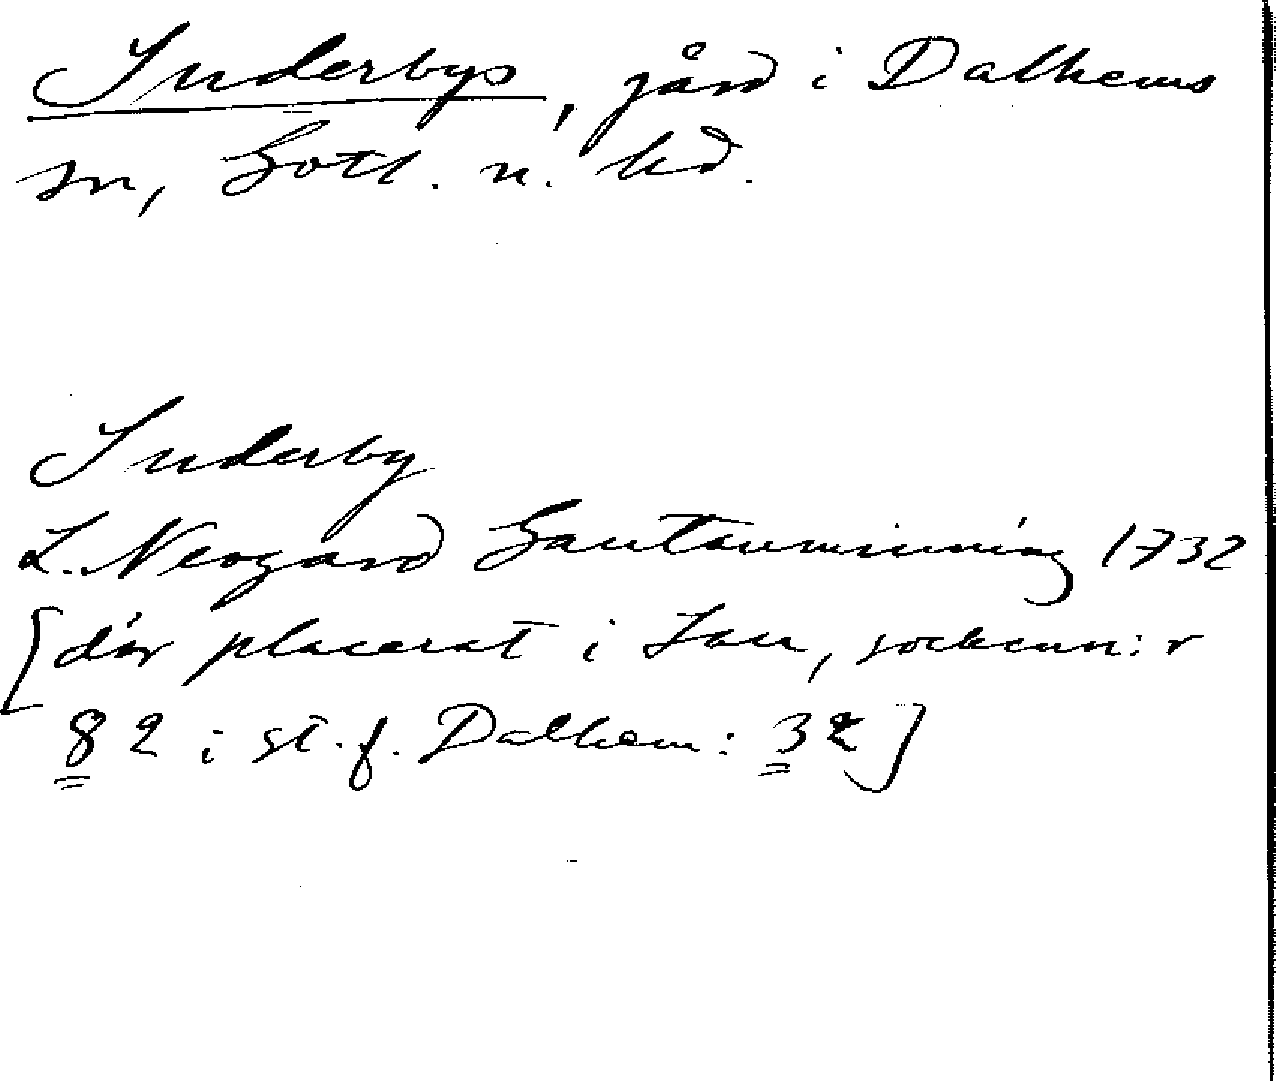 Suderbys, gård i Dalhems
sn, Gotl. n. hd.
Suderby
L. Neogard Gautauminning 1732
[där placerat i Lau, sockenn:r
82 i st. f. Dalhem: 32]